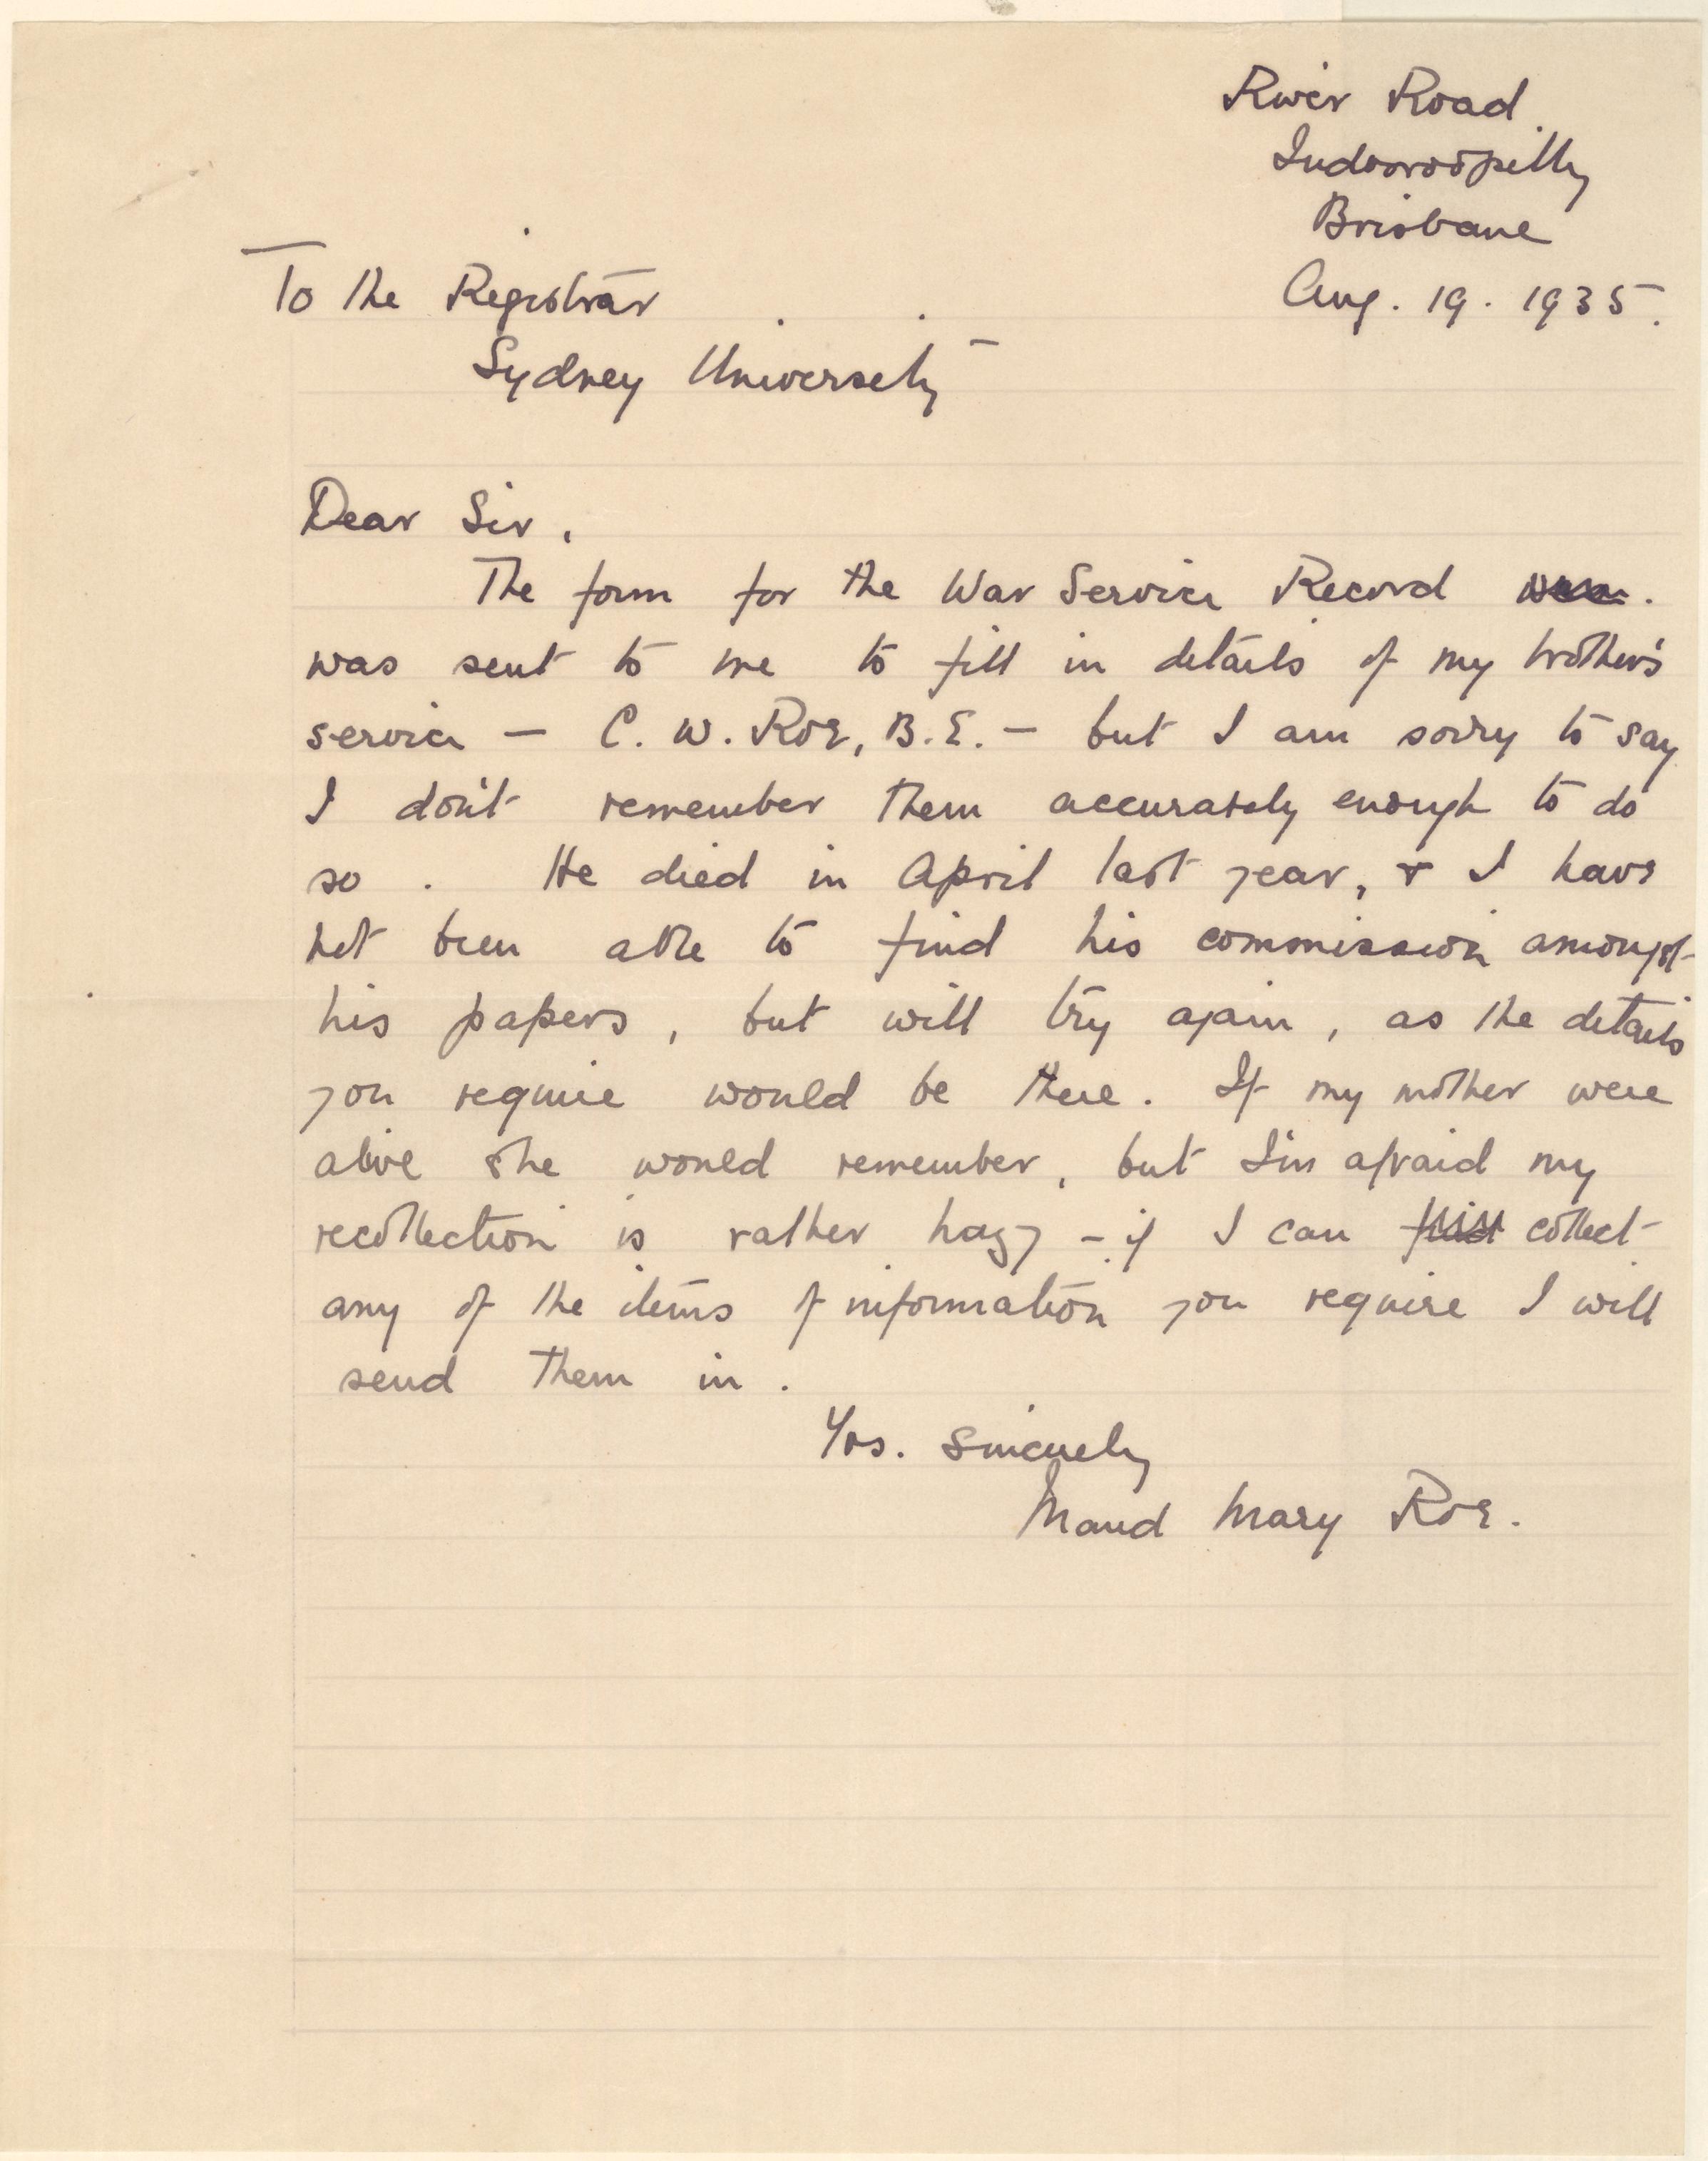 River Road
Indooroopilly
Brisbane
Aug. 19. 1935.
To the Registrar
Sydney University
Dear Sir,
The form for the War Service Record
was sent to me to fill in details of my brother's
service — C. W. Roe, B.E. — but I am sorry to say
I don't remember them accurately enough to do
so. He died in April last year, & I have
not been able to find his commission amongst
his papers, but will try again, as the details
you require would be there. If my mother were
alive she would remember, but I'm afraid my
recollection is rather hazy – if I can collect
any of the items of information you require I will
send them in.
Yrs. sincerely
Maud Mary Roe.